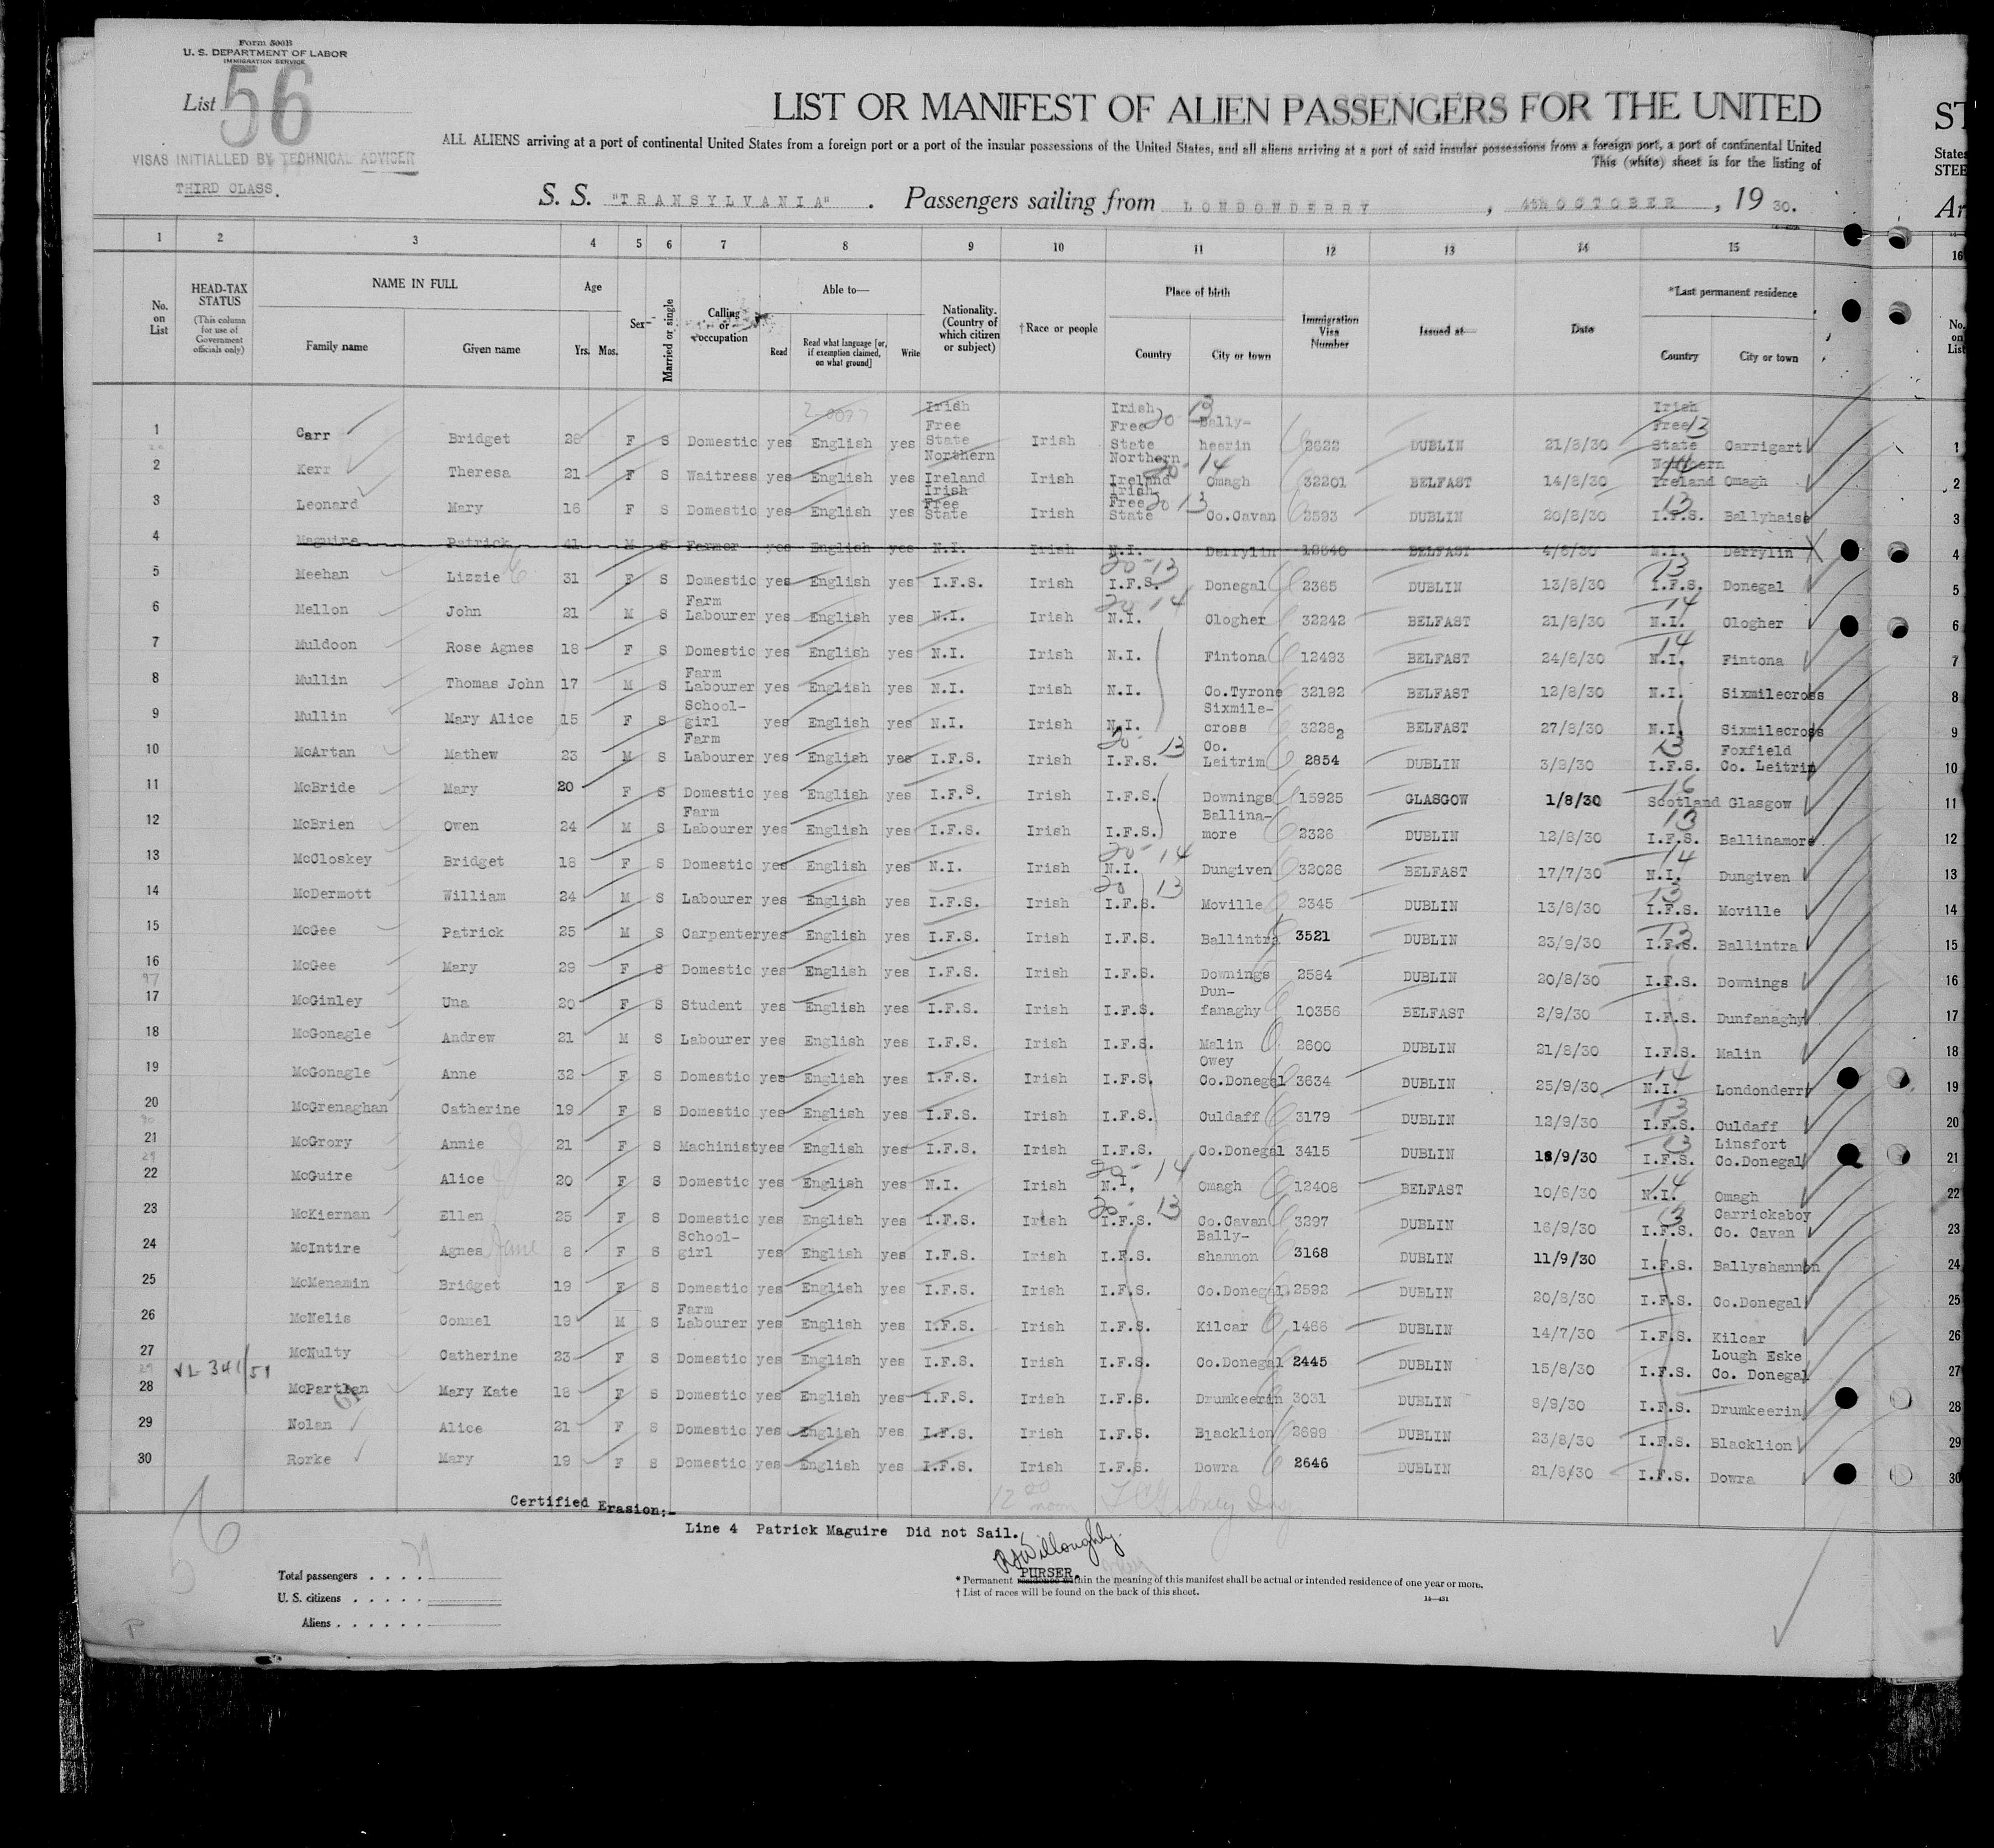 Form 500B
U. S. DEPARTMENT OF LABOR
IMMIGRATION SERVICE
List 56
VISAS INITIALLED BY TECHNICAL ADVISER
THIRD CLASS.
LIST OR MANIFEST OF ALIEN PASSENGERS FOR THE UNITED
ALL ALIENS arriving at a port of continental United States from a foreign port or a port of the insular possessions of the United States, and all aliens arriving at a port of said insular possessions from a foreign port, a port of continental United
This (white) sheet is for the listing of
S. S. "TRANSYLVANIA". Passengers sailing from LONDONDERRY, 4th OCTOBER, 19 30.
ST
States
STEE
Ar
1 2 3 4 5 6 7 8 9 10 11 12 13 14 15 16
No. on List
HEAD-TAX STATUS (This column for use of Government officials only)
NAME IN FULL
Family name
Given name
Age
Yrs. Mos.
Sex
Married or single
Calling or occupation
Able to—
Read
Read what language [or, if exemption claimed, on what ground]
Write
Nationality. (Country of which citizen or subject)
†Race or people
Place of birth
Country
City or town
Immigration Visa Number
Issued at—
Date
*Last permanent residence
Country
City or town
No. on List
1 Carr Bridget 28 F S Domestic yes English yes Irish Free State Irish Irish Free State Bally-heerin 2622 DUBLIN 21/8/30 Irish Free State Carrigart 1
2 Kerr Theresa 21 F S Waitress yes English yes Northern Ireland Irish Northern Ireland Omagh 32201 BELFAST 14/8/30 Northern Ireland Omagh 2
3 Leonard Mary 16 F S Domestic yes English yes Irish Free State Irish Irish Free State Co.Cavan 2593 DUBLIN 20/8/30 I.F.S. Ballyhaise 3
4 Maguire Patrick 41 M S Farmer yes English yes N.I. Irish N.I. Derrylin 19640 BELFAST 4/8/30 N.I. Derrylin 4
5 Meehan Lizzie 31 F S Domestic yes English yes I.F.S. Irish I.F.S. Donegal 2365 DUBLIN 13/8/30 I.F.S. Donegal 5
6 Mellon John 21 M S Farm Labourer yes English yes N.I. Irish N.I. Clogher 32242 BELFAST 21/8/30 N.I. Clogher 6
7 Muldoon Rose Agnes 18 F S Domestic yes English yes N.I. Irish N.I. Fintona 12493 BELFAST 24/6/30 N.I. Fintona 7
8 Mullin Thomas John 17 M S Farm Labourer yes English yes N.I. Irish N.I. Co.Tyrone 32192 BELFAST 12/8/30 N.I. Sixmilecross 8
9 Mullin Mary Alice 15 F S School-girl yes English yes N.I. Irish N.I. Sixmile-cross 32282 BELFAST 27/8/30 N.I. Sixmilecross 9
10 McArtan Mathew 23 M S Farm Labourer yes English yes I.F.S. Irish I.F.S. Co. Leitrim 2854 DUBLIN 3/9/30 I.F.S. Foxfield Co. Leitrim 10
11 McBride Mary 20 F S Domestic yes English yes I.F.S. Irish I.F.S. Downings 15925 GLASGOW 1/8/30 Scotland Glasgow 11
12 McBrien Owen 24 M S Farm Labourer yes English yes I.F.S. Irish I.F.S. Ballina-more 2326 DUBLIN 12/8/30 I.F.S. Ballinamore 12
13 McCloskey Bridget 18 F S Domestic yes English yes N.I. Irish N.I. Dungiven 32026 BELFAST 17/7/30 N.I. Dungiven 13
14 McDermott William 24 M S Labourer yes English yes I.F.S. Irish I.F.S. Moville 2345 DUBLIN 13/8/30 I.F.S. Moville 14
15 McGee Patrick 25 M S Carpenter yes English yes I.F.S. Irish I.F.S. Ballintra 3521 DUBLIN 23/9/30 I.F.S. Ballintra 15
16 McGee Mary 29 F S Domestic yes English yes I.F.S. Irish I.F.S. Downings 2584 DUBLIN 20/8/30 I.F.S. Downings 16
17 McGinley Una 20 F S Student yes English yes I.F.S. Irish I.F.S. Dun-fanaghy 10356 BELFAST 2/9/30 I.F.S. Dunfanaghy 17
18 McGonagle Andrew 21 M S Labourer yes English yes I.F.S. Irish I.F.S. Malin 2600 DUBLIN 21/8/30 I.F.S. Malin 18
19 McGonagle Anne 32 F S Domestic yes English yes I.F.S. Irish I.F.S. Owey Co.Donegal 3634 DUBLIN 25/9/30 N.I. Londonderry 19
20 McGrenaghan Catherine 19 F S Domestic yes English yes I.F.S. Irish I.F.S. Culdaff 3179 DUBLIN 12/9/30 I.F.S. Culdaff 20
21 McGrory Annie 21 F S Machinist yes English yes I.F.S. Irish I.F.S. Co.Donegal 3415 DUBLIN 18/9/30 I.F.S. Linsfort Co.Donegal 21
22 McGuire Alice 20 F S Domestic yes English yes N.I. Irish N.I. Omagh 12408 BELFAST 10/6/30 N.I. Omagh 22
23 McKiernan Ellen 25 F S Domestic yes English yes I.F.S. Irish I.F.S. Co.Cavan 3297 DUBLIN 16/9/30 I.F.S. Carrickaboy Co. Cavan 23
24 McIntire Agnes Jane 8 F S School-girl yes English yes I.F.S. Irish I.F.S. Bally-shannon 3168 DUBLIN 11/9/30 I.F.S. Ballyshannon 24
25 McMenamin Bridget 19 F S Domestic yes English yes I.F.S. Irish I.F.S. Co.Donegal 2592 DUBLIN 20/8/30 I.F.S. Co.Donegal 25
26 McNelis Connel 19 M S Farm Labourer yes English yes I.F.S. Irish I.F.S. Kilcar 1466 DUBLIN 14/7/30 I.F.S. Kilcar 26
27 McNulty Catherine 23 F S Domestic yes English yes I.F.S. Irish I.F.S. Co.Donegal 2445 DUBLIN 15/8/30 I.F.S. Lough Eske Co. Donegal 27
VL 341/51
28 McPartlan Mary Kate 18 F S Domestic yes English yes I.F.S. Irish I.F.S. Drumkeerin 3031 DUBLIN 8/9/30 I.F.S. Drumkeerin 28
29 Nolan Alice 21 F S Domestic yes English yes I.F.S. Irish I.F.S. Blacklion 2699 DUBLIN 23/8/30 I.F.S. Blacklion 29
30 Rorke Mary 19 F S Domestic yes English yes I.F.S. Irish I.F.S. Dowra 2646 DUBLIN 21/8/30 I.F.S. Dowra 30
Certified Erasion:-
Line 4 Patrick Maguire Did not Sail.
RH Willoughby.
PURSER.
56
Total passengers . . . . 29
U. S. citizens . . . . .
Aliens . . . . . .
* Permanent residence within the meaning of this manifest shall be actual or intended residence of one year or more.
† List of races will be found on the back of this sheet.
14—431